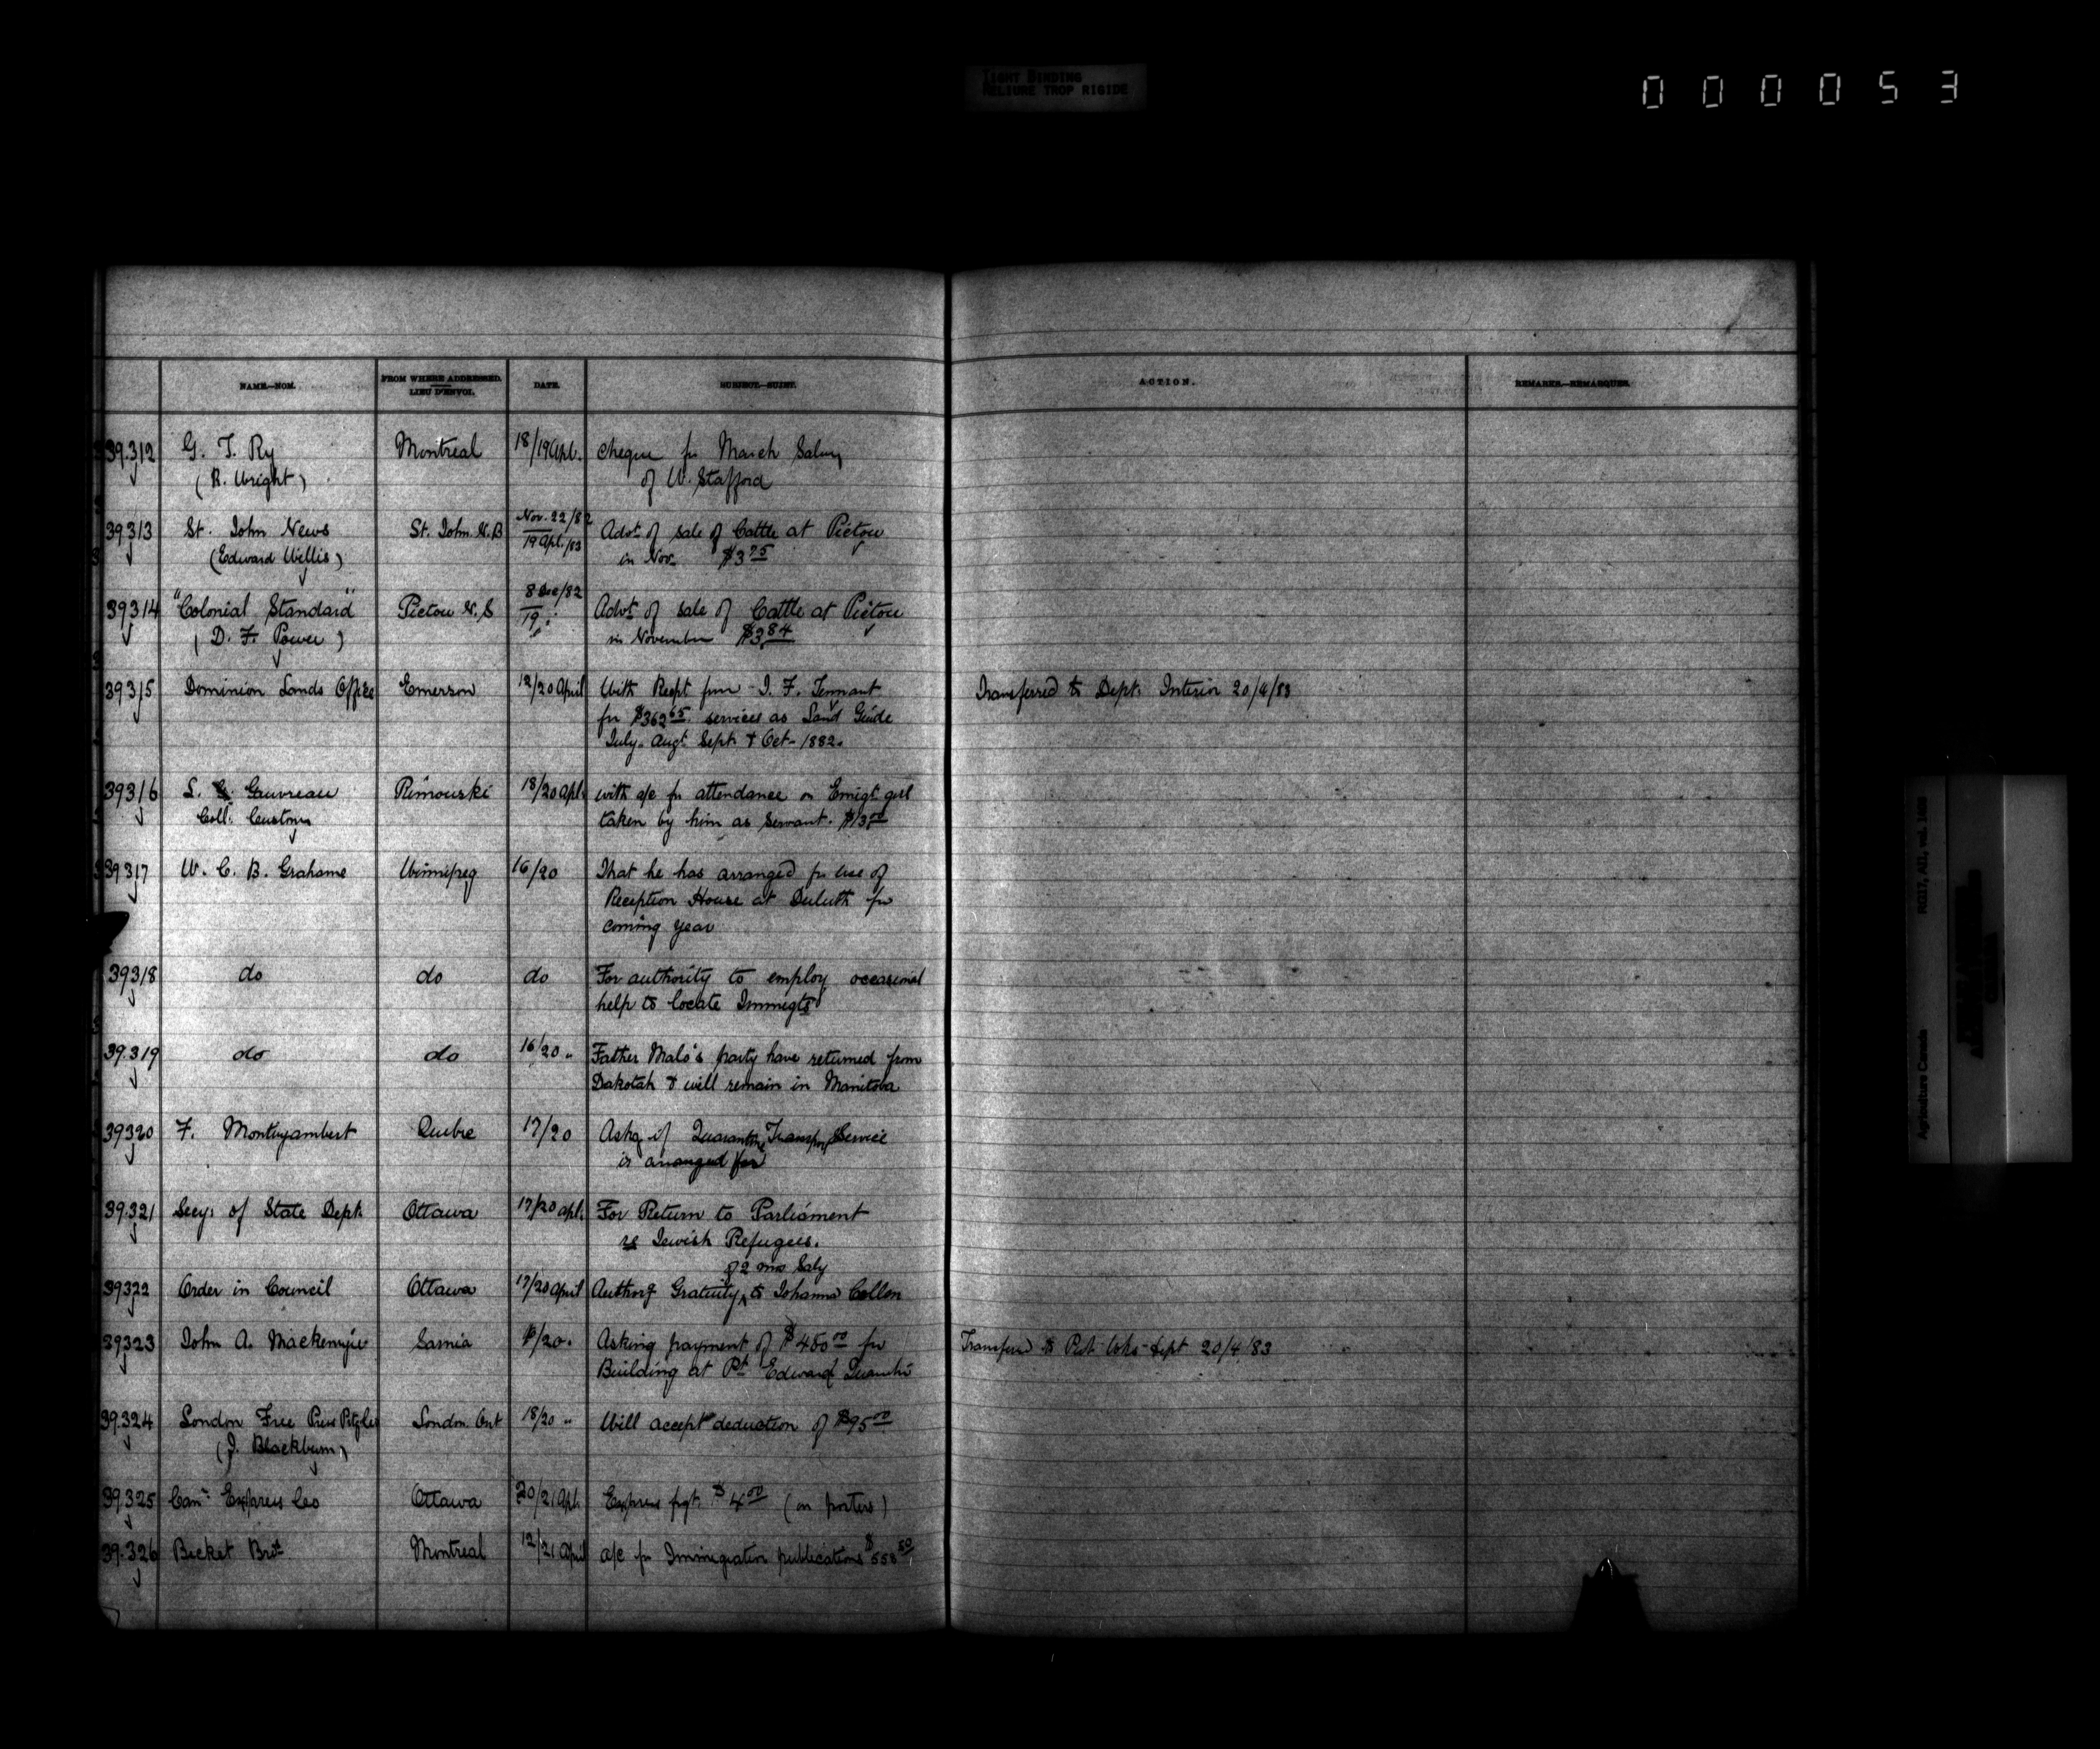 TIGHT BINDING
RELIURE TROP RIGIDE
000053
NAME.—NOM.
FROM WHERE ADDRESSED.
LIEU D'ENVOI.
DATE.
SUBJECT.—SUJET.
ACTION.
REMARKS.—REMARQUES.
39.312 G. T. Ry Montreal 18/19 Apl. Cheque for March Salary
(R. Wright) of W. Stafford
39313 St. John News St. John N.B Nov. 22/82 Advt. of sale of Cattle at Pictou
(Edward Willis) 19 Apl./83 in Nov. $3.75
39314 "Colonial Standard" Pictou N.S 8 Dec/82 Advt. of sale of Cattle at Pictou
(D. F. Power) 19 " in November $3.84
39315 Dominion Lands Office Emerson 12/20 April With Recpt from J. F. Tennant Transferred to Dept. Interior 20/4/83
for $362.65 services as Land Guide
July. Augt. Sept. & Oct- 1882.
39316 L. Gauvreau Rimouski 18/20 Apl. with a/c for attendance on Emigt. girl
Coll. Customs taken by him as Servant. $13.00
39317 W. C. B. Grahame Winnipeg 16/20 That he has arranged for use of
Reception House at Duluth for
coming year
39318 do do do For authority to employ occasional
help to locate Immigts
39.319 do do 16/20 " Father Malo's party have returned from
Dakotah & will remain in Manitoba
39320 F. Montizambert Quebec 17/20 Askg if Quarantine Transport Service
is arranged for
39.321 Secy. of State Dept. Ottawa 17/20 Apl. For Return to Parliament
re Jewish Refugees.
of 2 mos Saly
39322 Order in Council Ottawa 17/20 April Authorg Gratuity to Johanna Collen
39323 John A. Mackenzie Sarnia /20. Asking payment of $450.00 for Transferred to Pub Wks Dept 20/4/83
Building at Pt. Edward Quantne
39.324 London Free Press London Ont 18/20 " Will accept deduction of $95.00
(J. Blackburn)
39.325 Can. Express Co Ottawa 20/21 Apl. Express frgt. $4.00 (on posters)
39.326 Becket Bros Montreal 12/21 April a/c for Immigration publications $558.50
Agriculture Canada
RG17, AII, vol. 1492